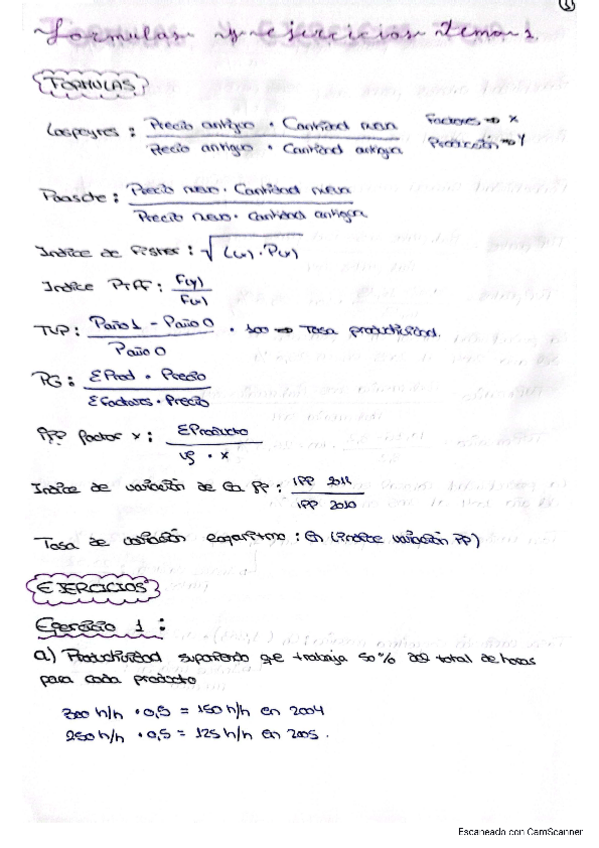 Formulas y ejercicios tema 1
FORMULAS
Laspeyres : Precio antiguo · Cantidad nueva / Precio antiguo · Cantidad antigua
Factores ⇒ X
Producción ⇒ Y
Paasche : Precio nuevo · Cantidad nueva / Precio nuevo · Cantidad antigua
Indice de Fisher : √ L(x) · P(x)
Indice PTFF : F(y) / F(x)
TVP : Paño 1 - Paño 0 / Paño 0 · 100 ⇒ Tasa productividad.
PG : ΣProd · Precio / Σ Factores · Precio
factor x : ΣProducto / · x
Indice de variación de la PP : IPP 2011 / IPP 2010
Tasa de variación logaritmo : ln (indice variación PP)
EJERCICIOS
Ejercicio 1 :
a) Productividad suponiendo que trabaja 50% del total de horas
para cada producto
300 h/h · 0,5 = 150 h/h en 2004
250 h/h · 0,5 = 125 h/h en 2005 .
Escaneado con CamScanner